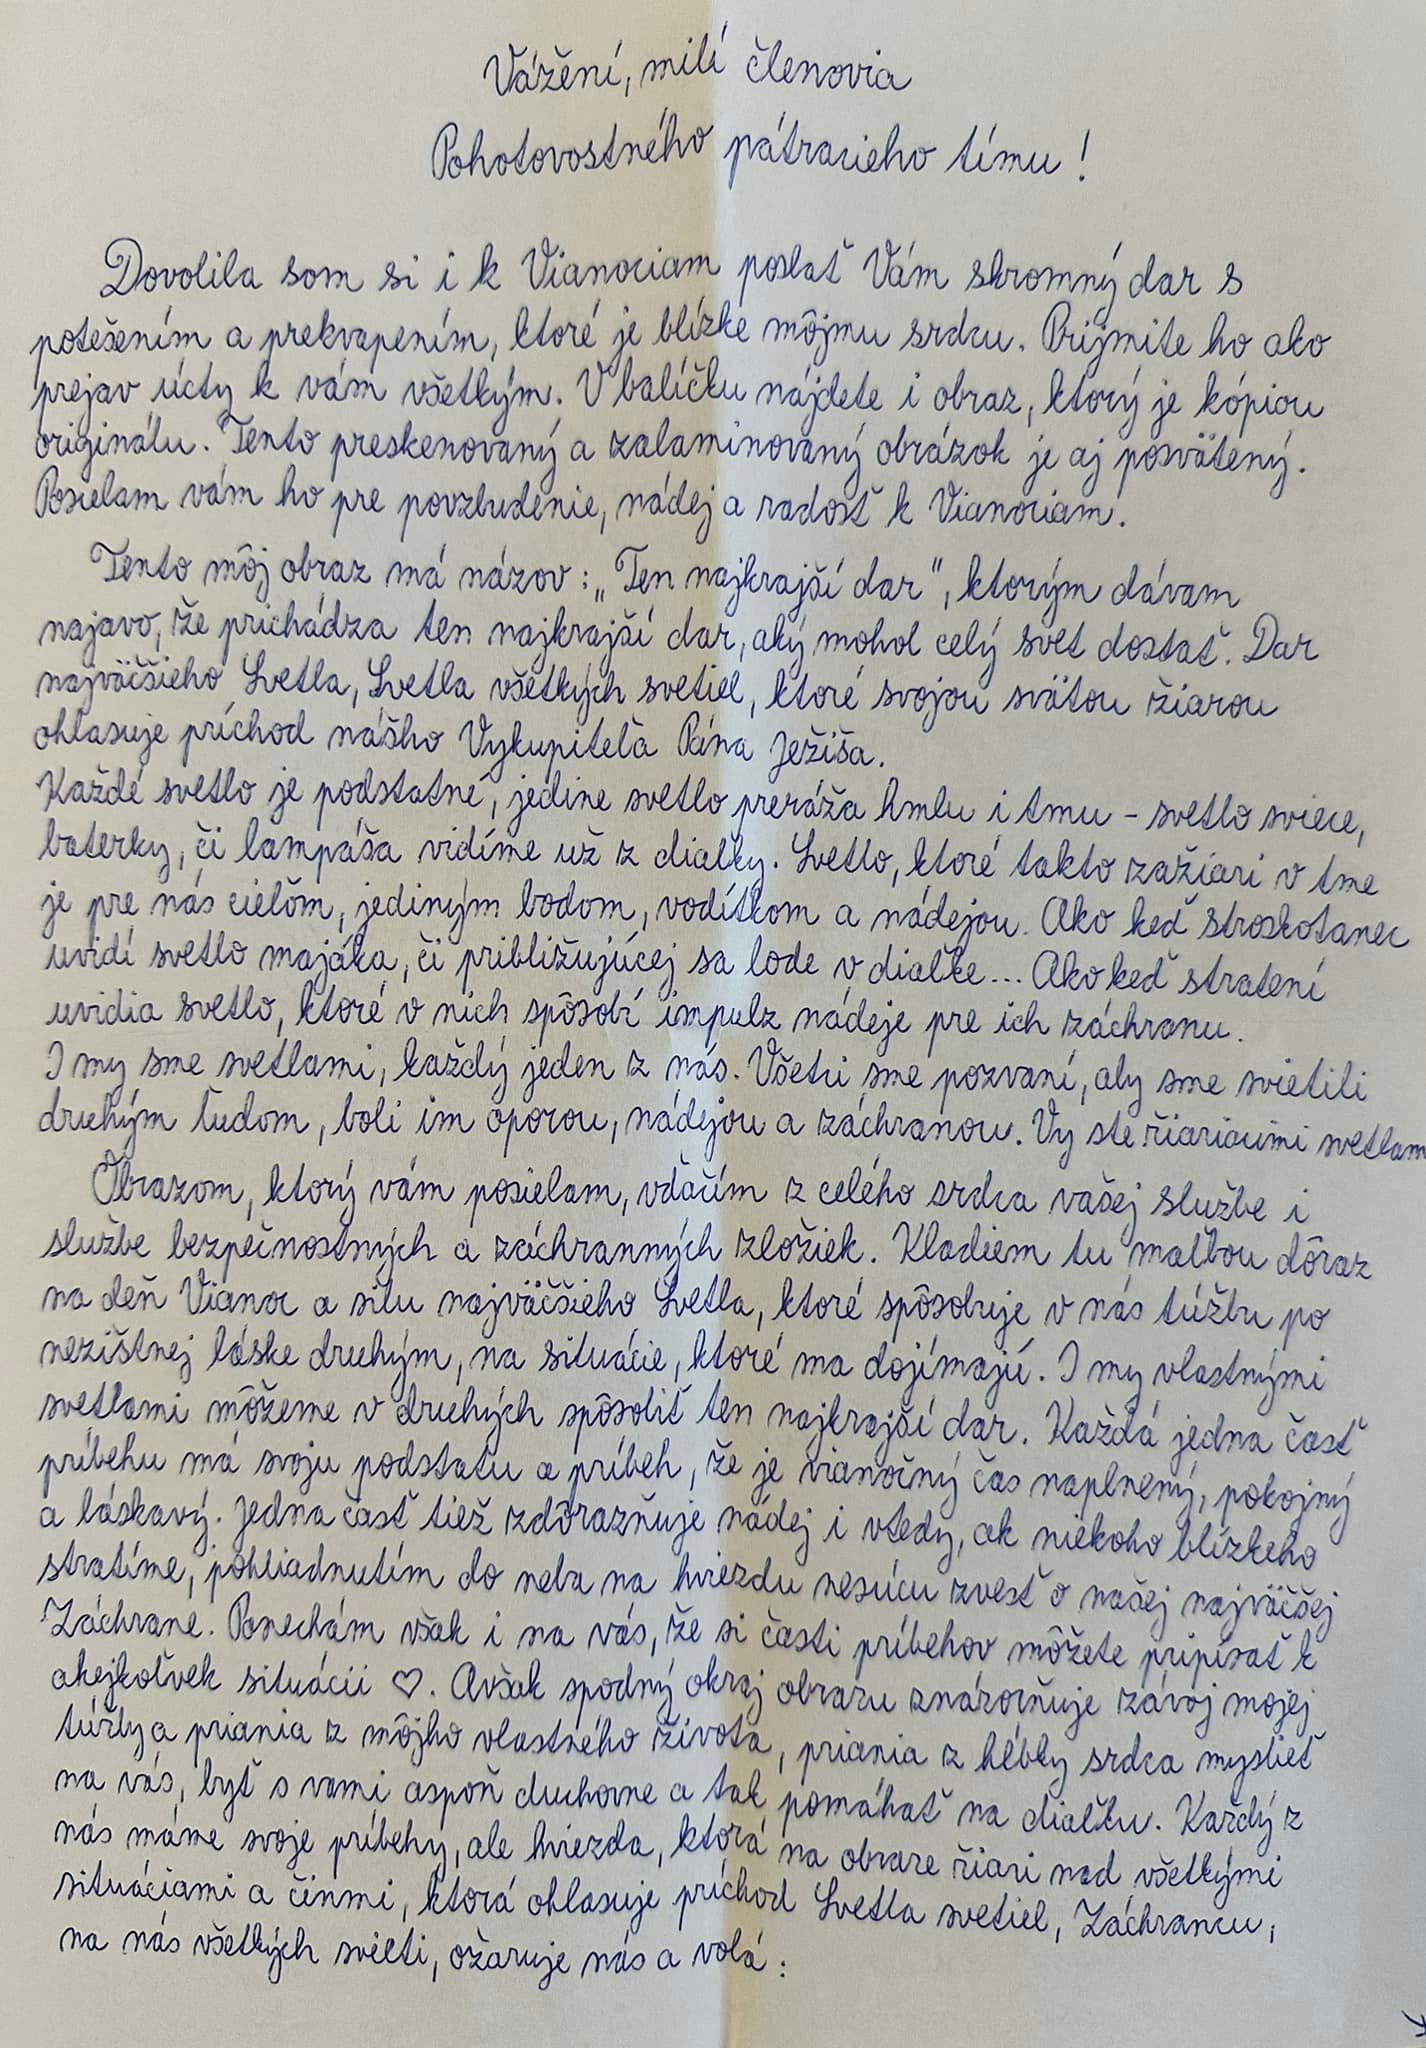 Vážení, milí členovia
Pohotovostného pátracieho tímu!
Dovolila som si i k Vianociam poslať Vám skromný dar s
potešením a prekvapením, ktoré je blízke môjmu srdcu. Prijmite ho ako
prejav úcty k vám všetkým. V balíčku nájdete i obraz, ktorý je kópiou
originálu. Tento preskenovaný a zalaminovaný obrázok je aj posvätený.
Posielam vám ho pre povzbudenie, nádej a radosť k Vianociam.
Tento môj obraz má názov: „Ten najkrajší dar", ktorým dávam
najavo, že prichádza ten najkrajší dar, aký mohol celý svet dostať. Dar
najväčšieho Svetla, Svetla všetkých svetiel, ktoré svojou svätou žiarou
ohlasuje príchod nášho Vykupiteľa Pána Ježiša.
Každé svetlo je podstatné, jedine svetlo preráža hmlu i tmu - svetlo sviece,
baterky, či lampáša vidíme už z diaľky. Svetlo, ktoré takto zažiari v tme
je pre nás cieľom, jediným bodom, vodítkom a nádejou. Ako keď stroskotanec
uvidí svetlo majáka, či približujúcej sa lode v diaľke... Ako keď stratení
uvidia svetlo, ktoré v nich spôsobí impulz nádeje pre ich záchranu.
I my sme svetlami, každý jeden z nás. Všetci sme pozvaní, aby sme svietili
druhým ľuďom, boli im oporou, nádejou a záchranou. Vy ste žiariacimi svetlam
Obrazom, ktorý vám posielam, vďačím z celého srdca vašej službe i
službe bezpečnostných a záchranných zložiek. Kladiem tu maľbou dôraz
na deň Vianoc a silu najväčšieho Svetla, ktoré spôsobuje v nás túžbu po
nezištnej láske druhým, na situácie, ktoré ma dojímajú. I my vlastnými
svetlami môžeme v druhých spôsobiť ten najkrajší dar. Každá jedna časť
príbehu má svoju podstatu a príbeh, že je vianočný čas naplnený, pokojný
a láskavý. Jedna časť tiež zdôrazňuje nádej i vtedy, ak niekoho blízkeho
stratíme, pohliadnutím do neba na hviezdu nesúcu zvesť o našej najväčšej
Záchrane. Ponechám však i na vás, že si časti príbehov môžete pripísať k
akejkoľvek situácii ♡. Avšak spodný okraj obrazu znázorňuje závoj mojej
túžby a priania z môjho vlastného života, priania z hĺbky srdca myslieť
na vás, byť s vami aspoň duchovne a tak pomáhať na diaľku. Každý z
nás máme svoje príbehy, ale hviezda, ktorá na obraze žiari nad všetkými
situáciami a činmi, ktorá ohlasuje príchod Svetla svetiel, Záchrancu,
na nás všetkých svieti, ožaruje nás a volá: